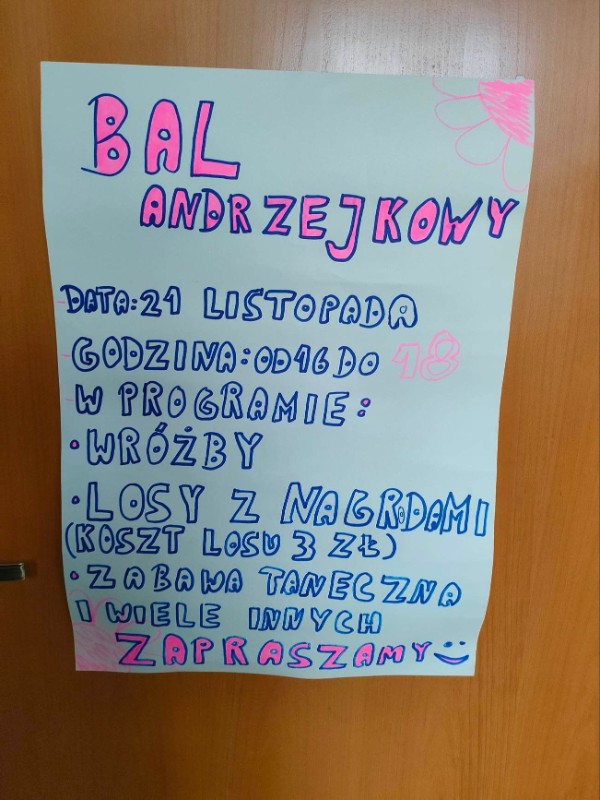 BAL
ANDRZEJKOWY
DATA: 21 LISTOPADA
GODZINA: OD 16 DO 18
W PROGRAMIE:
• WRÓŻBY
• LOSY Z NAGRODAMI
(KOSZT LOSU 3 ZŁ)
• ZABAWA TANECZNA
I WIELE INNYCH
ZAPRASZAMY